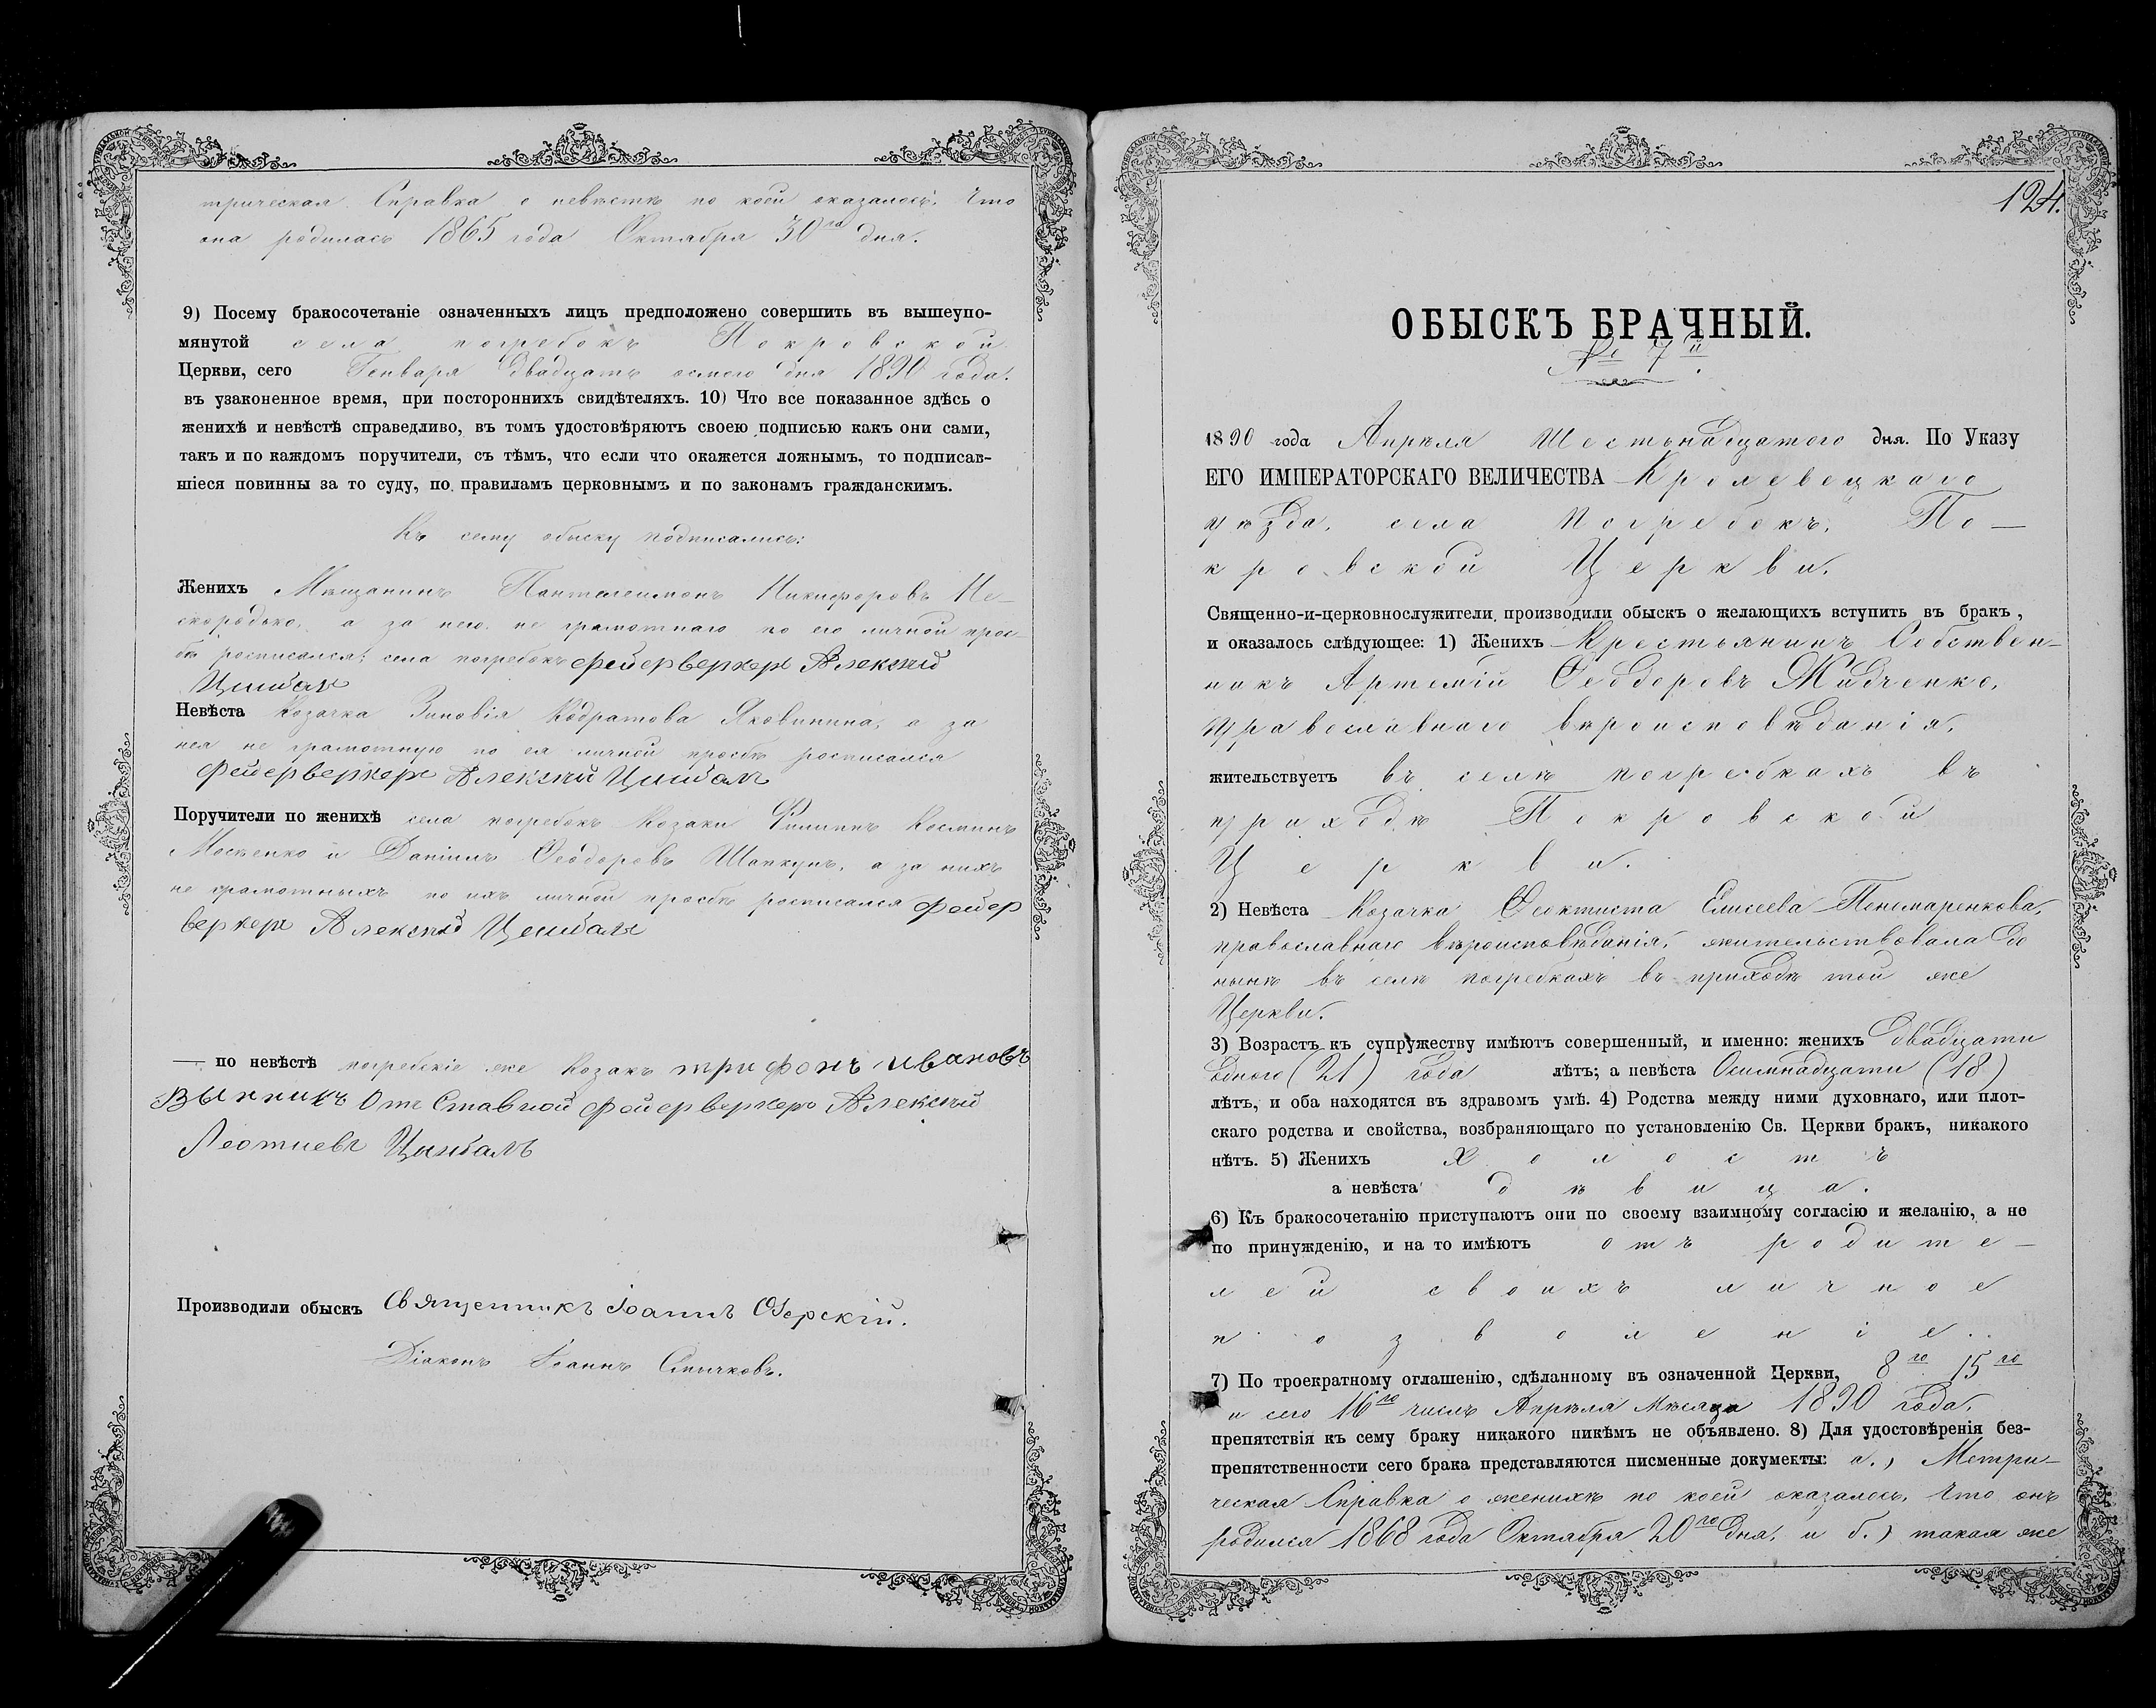 трическая Справка о невѣстѣ по коей оказалось, что
она родилась 1865 года Октября 30го дня.
9) Посему бракосочетаніе означенныхъ лицъ предположено совершить въ вышеупо-
мянутой села погребокъ Покровской
Церкви, сего Генваря двадцать осмаго дня 1890 года.
въ узаконенное время, при постороннихъ свидѣтеляхъ. 10) Что все показанное здѣсь о
женихѣ и невѣстѣ справедливо, въ томъ удостовѣряютъ своею подписью какъ они сами,
такъ и по каждомъ поручители, съ тѣмъ, что если что окажется ложнымъ, то подписав-
шіеся повинны за то суду, по правиламъ церковнымъ и по законамъ гражданскимъ.
Къ сему обыску подписались:
Женихъ Мѣщанинъ Пантелеимонъ Никифоровъ Не-
скородько, а за него не грамотнаго по его личной прось-
бѣ росписался: села погребокъ фейерверкеръ Алексѣй
Невѣста Козачка Зиновія Кодратова Яковинина, а за
нея не грамотную по ея личной просбѣ росписался
фейерверкеръ Алексѣй
Поручители по женихѣ села погребокъ Козаки Филиппъ Косминъ
Москенко и Даніилъ Ѳеодоровъ Шапкунъ, а за нихъ
не грамотныхъ по ихъ личной просбѣ росписался фейер
веркеръ Алексѣй
— по невѣстѣ погребскіе же Козакъ трифонъ ивановъ
Отъ Ставной фейерверкеръ Алексѣй
Леотиевъ Цимбалъ
Производили обыскъ Священникъ Іоаннъ Озерскій.
Діаконъ Іоаннъ Смычковъ.
124.
ОБЫСКЪ БРАЧНЫЙ.
№ 7й.
1890 года Апрѣля Шестьнадцатого дня. По Указу
ЕГО ИМПЕРАТОРСКАГО ВЕЛИЧЕСТВА Кролевецкаго
уѣзда, села Погребокъ, По-
кровской Церкви.
Священно-и-церковнослужители производили обыскъ о желающихъ вступить въ бракъ,
и оказалось слѣдующее: 1) Женихъ Крестьянинъ Собствен-
никъ Артемій Ѳеодоровъ Жидченко,
православнаго вѣроисповѣданія,
жительствуетъ въ селѣ погребкахъ въ
приходѣ Покровской
Церкви.
2) Невѣста Козачка Ѳеоктиста Елисеева Пономаренкова,
православнаго вѣроисповѣданія, жительствовала до
нынѣ въ селѣ погребкахъ въ приходѣ той же
Церкви.
3) Возрастъ къ супружеству имѣютъ совершенный, и именно: женихъ двадцати
одного (21) года лѣтъ; а невѣста Осимнадцати (18)
лѣтъ, и оба находятся въ здравомъ умѣ. 4) Родства между ними духовнаго, или плот-
скаго родства и свойства, возбраняющаго по установленію Св. Церкви бракъ, никакого
нѣтъ. 5) Женихъ Холостъ
а невѣста дѣвица.
6) Къ бракосочетанію приступаютъ они по своему взаимному согласію и желанію, а не
по принужденію, и на то имѣютъ отъ родите-
лей своихъ личное
позволеніе.
7) По троекратному оглашенію, сдѣланному въ означенной Церкви, 8го 15го
и сего 16го числъ Апрѣля Мѣсяца 1890 года,
препятствія къ сему браку никакого никѣмъ не объявлено. 8) Для удостовѣренія без-
препятственности сего брака представляются писменные документы: а.) Метри-
ческая Справка о женихѣ по коей оказалось, что онъ
родился 1868 года Октября 20го дня, и б.) такая же